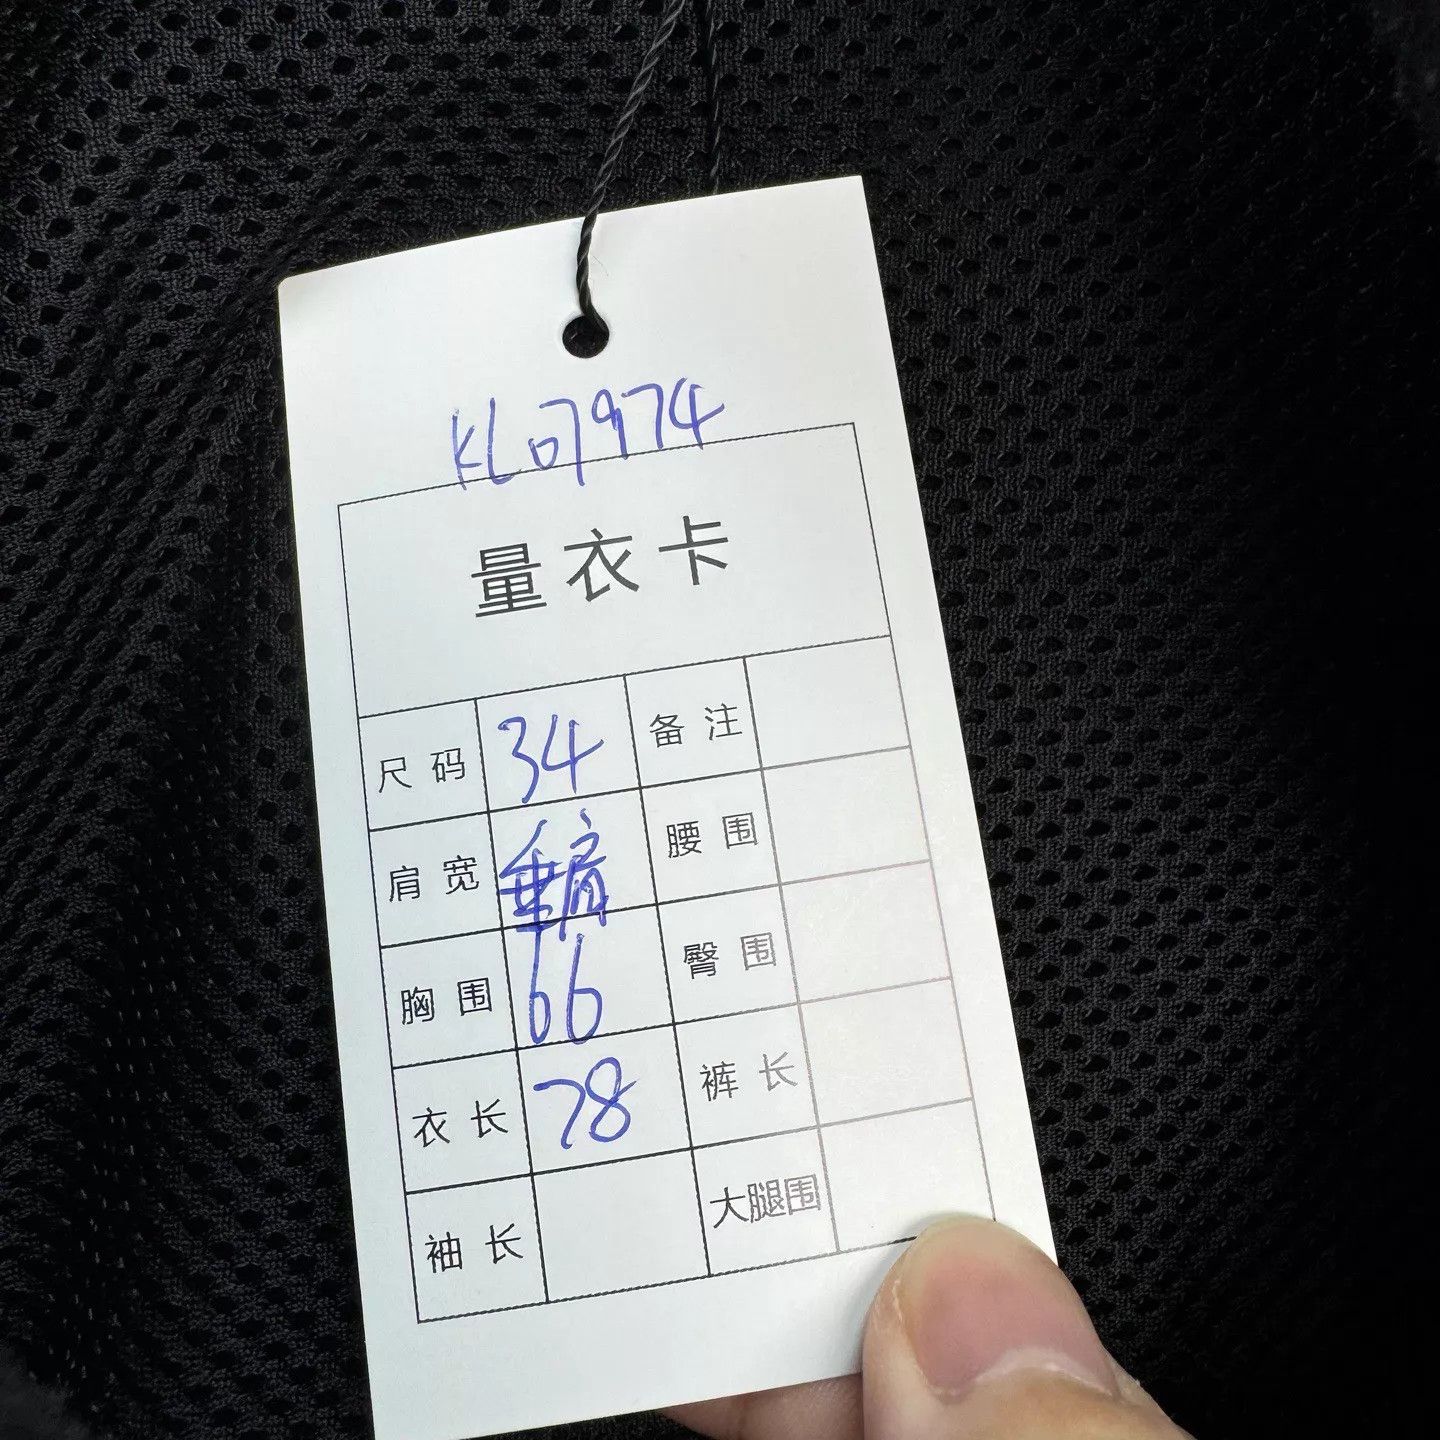 KL07974
量衣卡
尺码 34 备注
肩宽 垂肩 腰围
胸围 66 臀围
衣长 78 裤长
袖长 大腿围